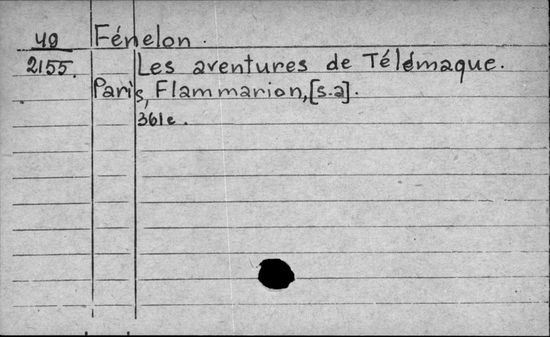 49
Fénelon.
2155.
Les aventures de Télémaque.
Paris, Flammarion, [s.a].
361c.